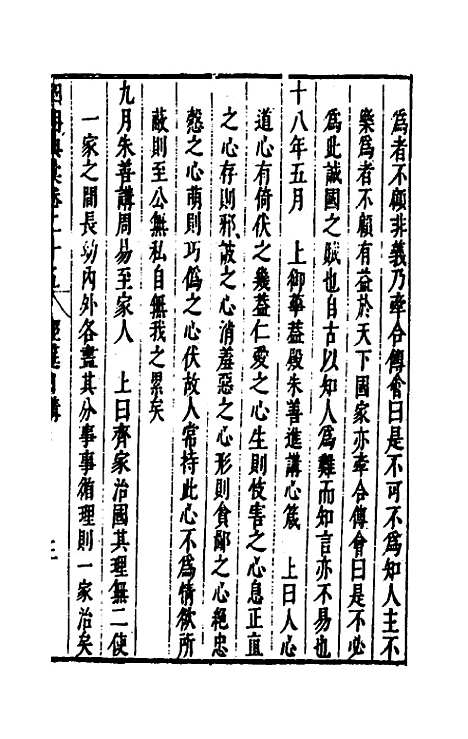 為者不顧非義乃牽合傅會曰是不可不為知人主不
樂為者不顧有益於天下國家亦牽合傅會曰是不必
為此誠國之賊也自古以知人為難而知言亦不易也
十八年五月　上御華蓋殿朱善進講心箴　上曰人心
道心有倚伏之幾蓋仁愛之心生則忮害之心息正直
之心存則邪詖之心消羞惡之心形則貪鄙之心絕忠
慤之心萌則巧偽之心伏故人常持此心不為情欲所
蔽則至公無私自無我之累矣
九月朱善講周易至家人　上曰齊家治國其理無二使
一家之間長幼內外各盡其分事事循理則一家治矣
卷之十五　經筵日講